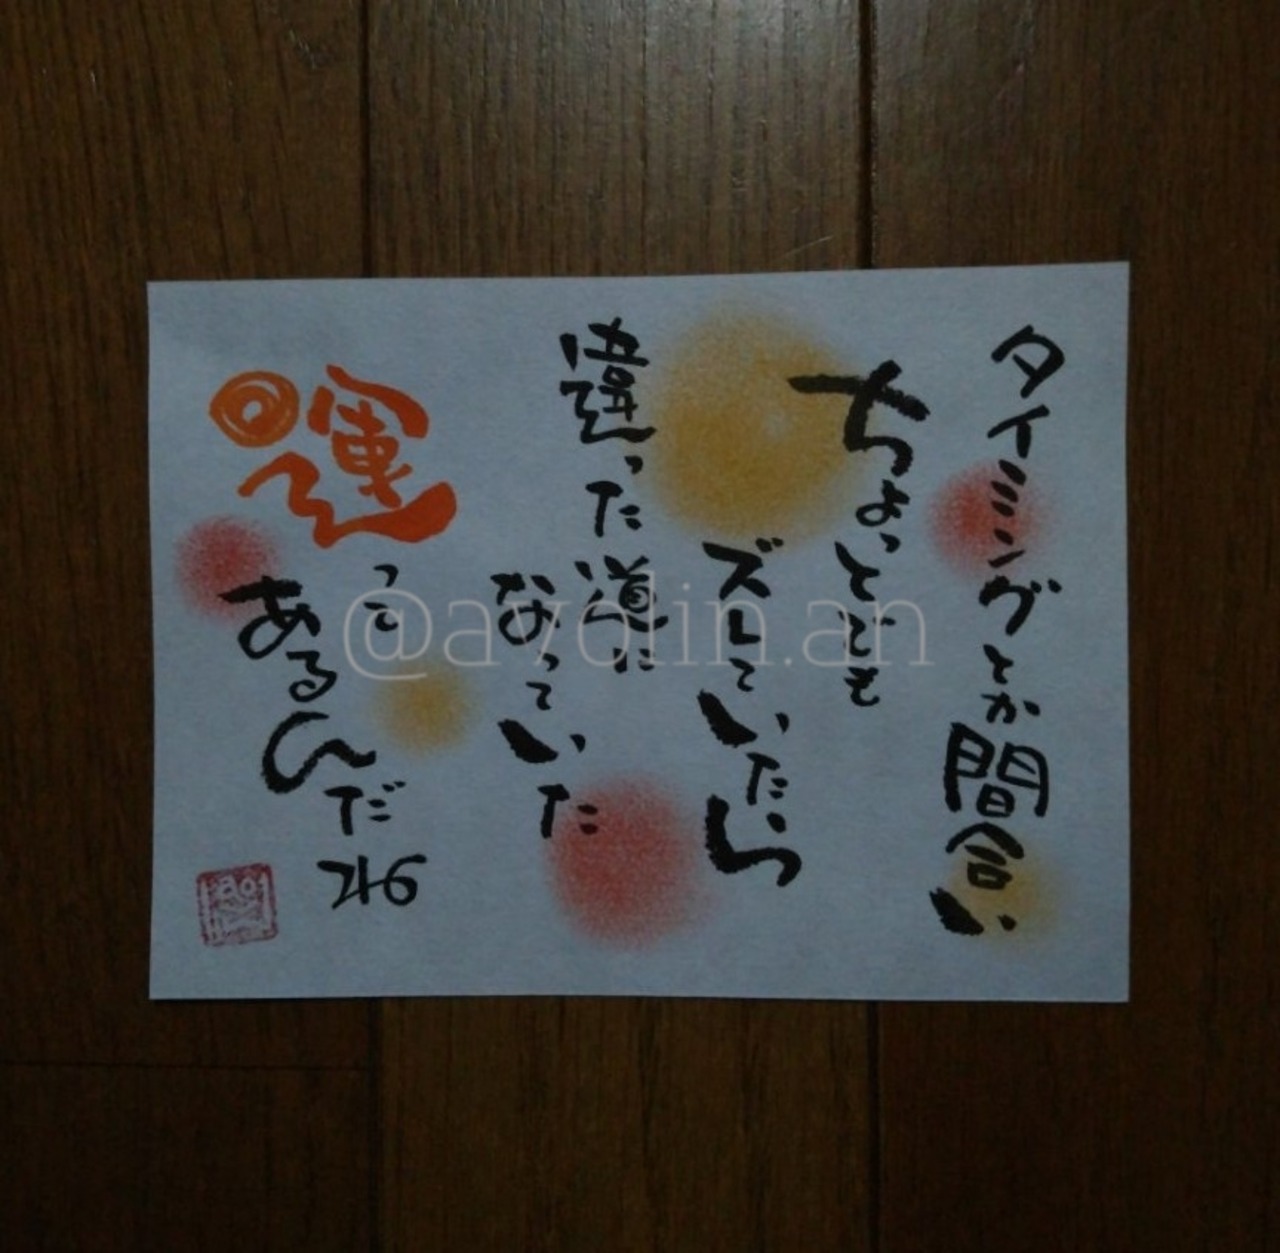 タイミングとか間合い
ちょっとでも
ズレていたら
違った道に
なっていた
運って
あるんだ
246
@ayolin.an